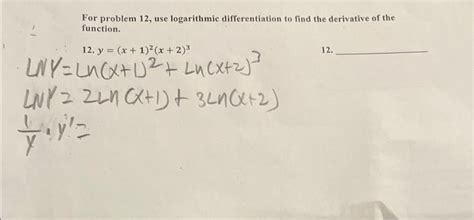 For problem 12, use logarithmic differentiation to find the derivative of the
function.
12. y = (x + 1)²(x + 2)³
12. ____________
LNY=Ln(x+1)² + Ln(x+2)³
LNY = 2Ln(x+1) + 3Ln(x+2)
1/y · y' =